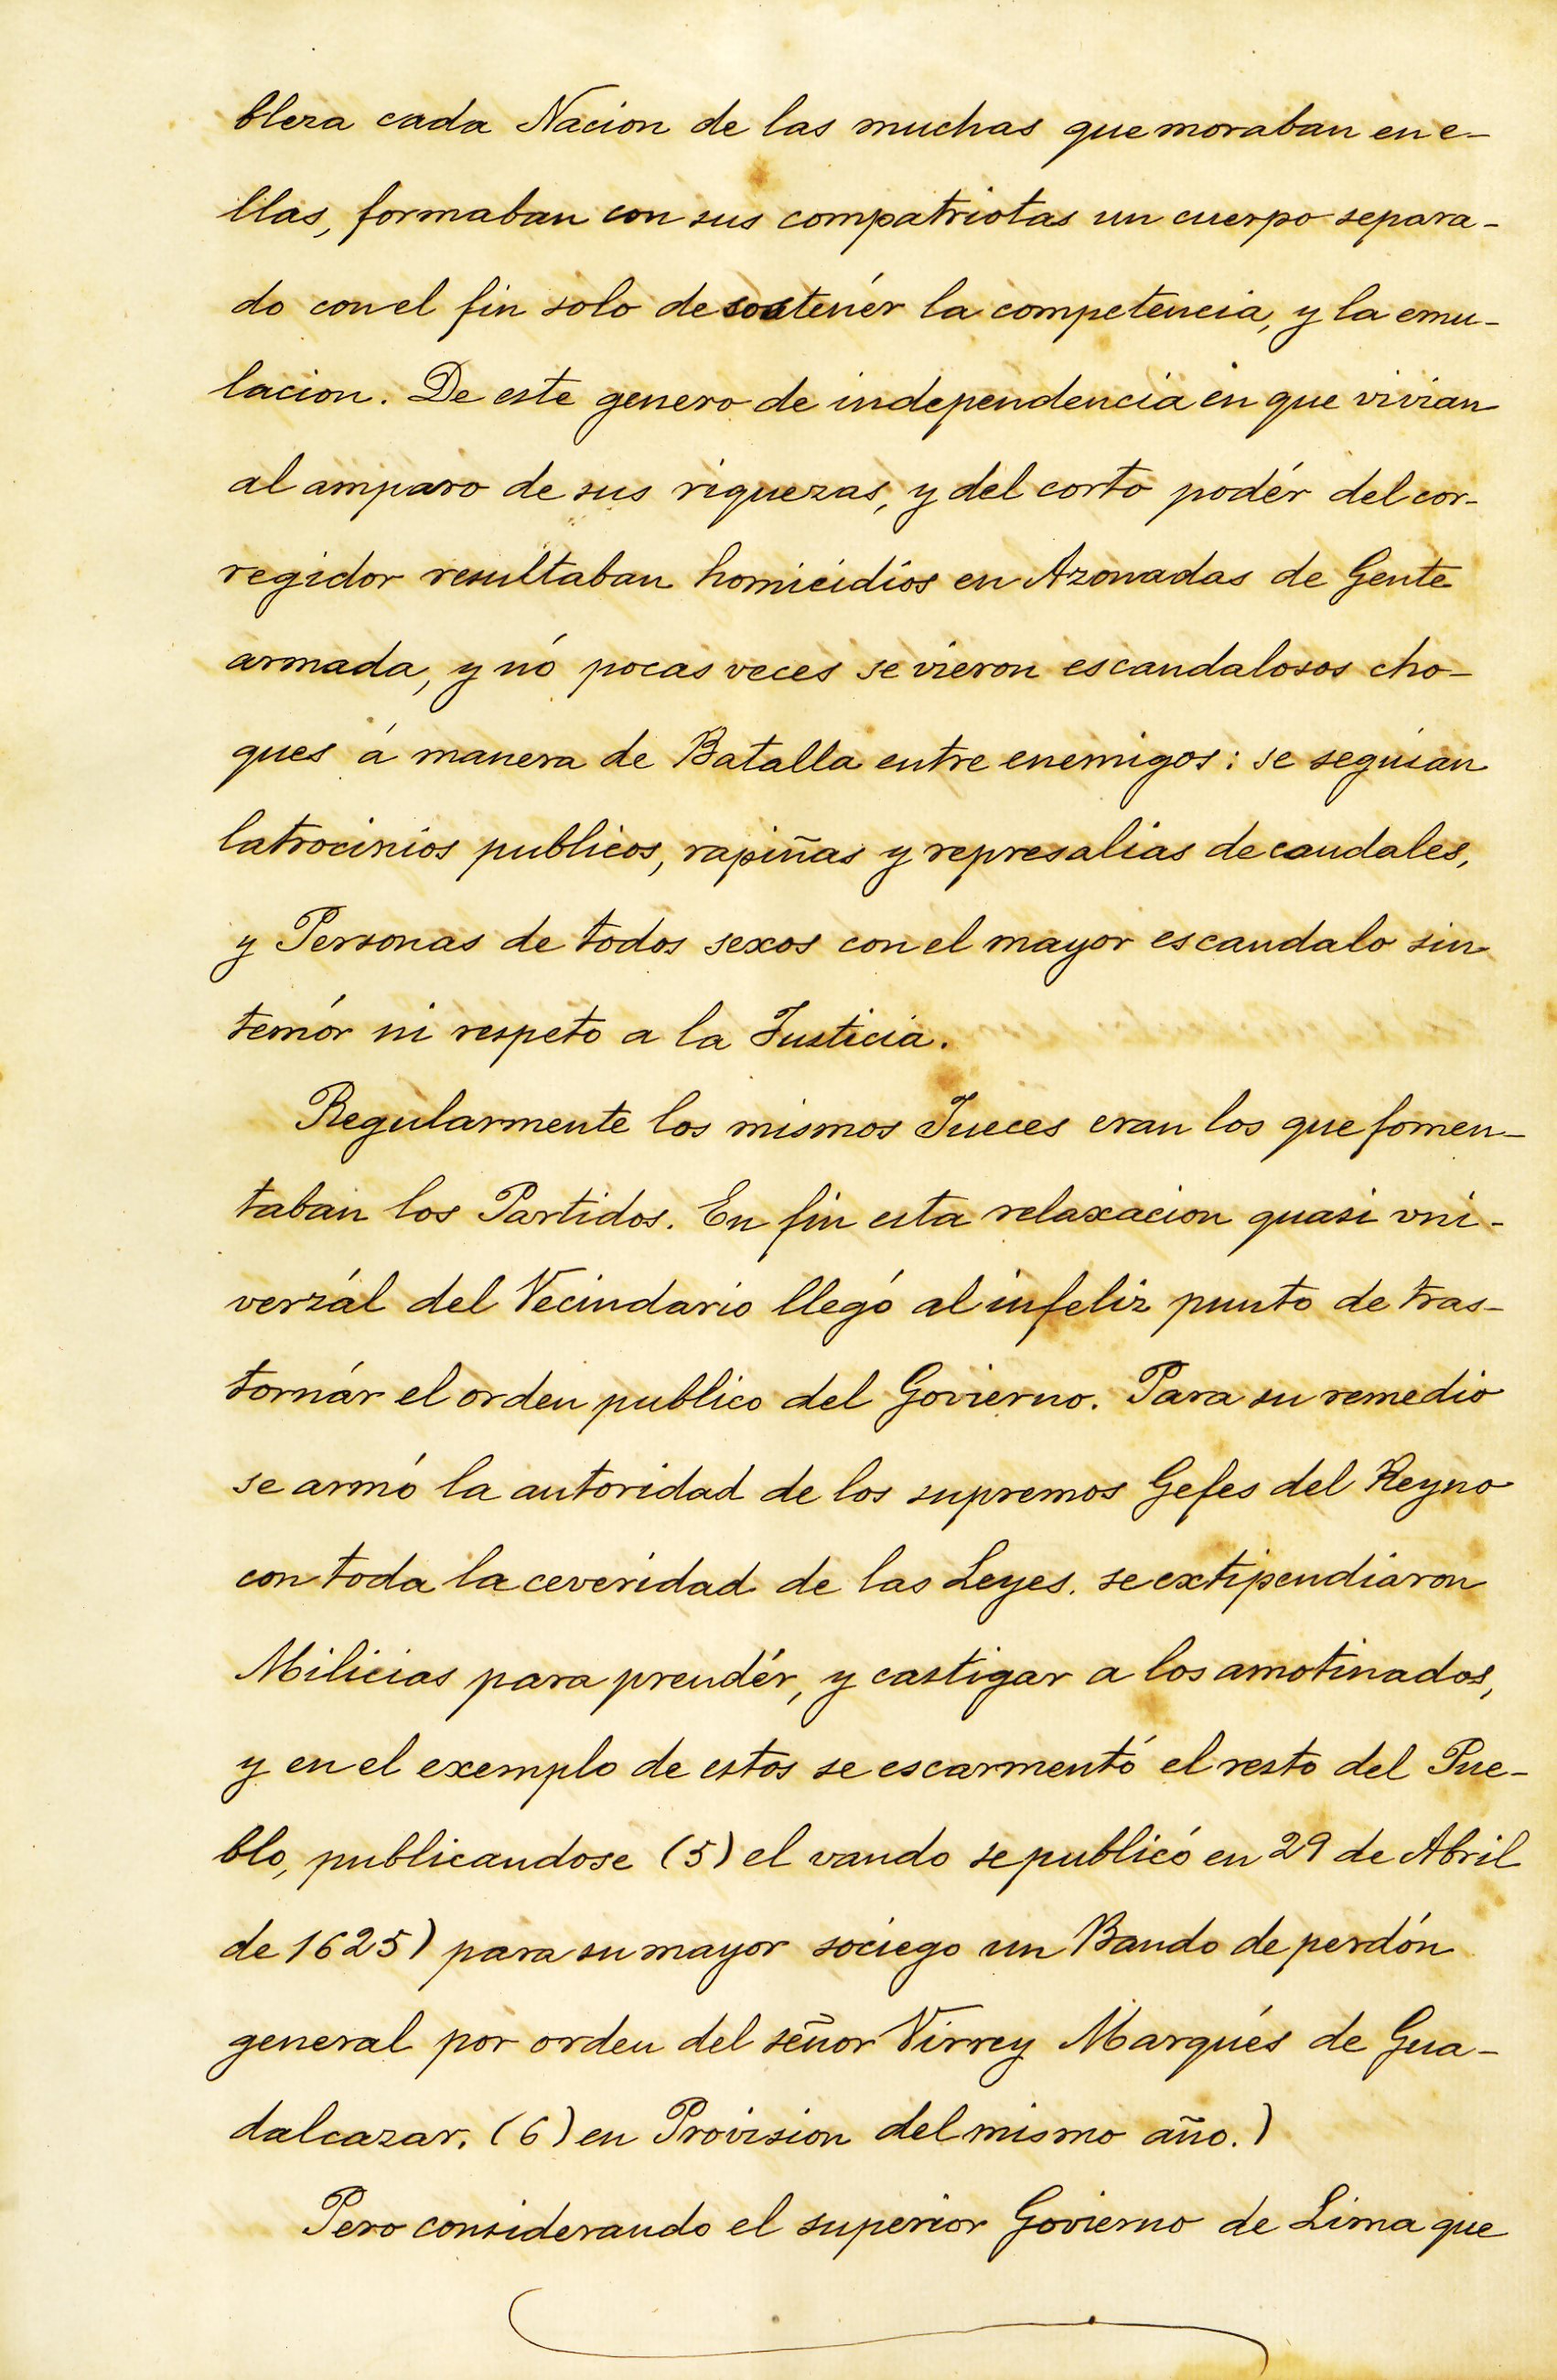 blera cada Nacion de las muchas que moraban en e-
llas, formaban con sus compatriotas un cuerpo separa-
do con el fin solo de sostenér la competencia, y la emu-
lacion. De este genero de independencia en que vivian
al amparo de sus riquezas, y del corto podér del cor-
regidor resultaban homicidios en Azonadas de Gente
armada, y nó pocas veces se vieron escandalosos cho-
ques á manera de Batalla entre enemigos: se seguian
latrocinios publicos, rapiñas y represalias de caudales,
y Personas de todos sexos con el mayor escandalo sin
temór ni respeto a la Justicia.
Regularmente los mismos Jueces eran los que fomen-
taban los Partidos. En fin esta relaxacion quasi vni-
verzál del Vecindario llegó al infeliz punto de tras-
tornár el orden publico del Govierno. Para su remedio
se armó la autoridad de los supremos Gefes del Reyno
con toda la ceveridad de las Leyes. se extipendiaron
Milicias para prendér, y castigar a los amotinados,
y en el exemplo de estos se escarmentó el resto del Pue-
blo, publicandose (5) el vando se publicó en 29 de Abril
de 1625) para su mayor sociego un Bando de perdón
general por orden del señor Virrey Marqués de Gua-
dalcazar. (6) en Provision del mismo año.)
Pero considerando el superior Govierno de Lima que